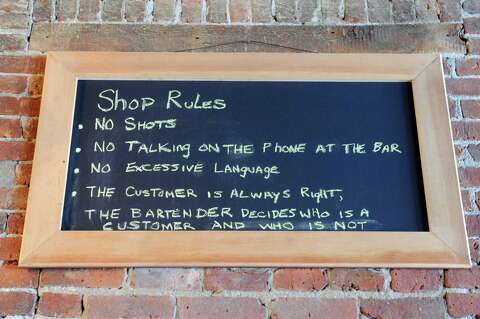 Shop Rules
• No Shots
• No Talking on the Phone at the Bar
• No Excessive Language
• The Customer is Always Right,
The Bartender Decides who is a
Customer and who is not